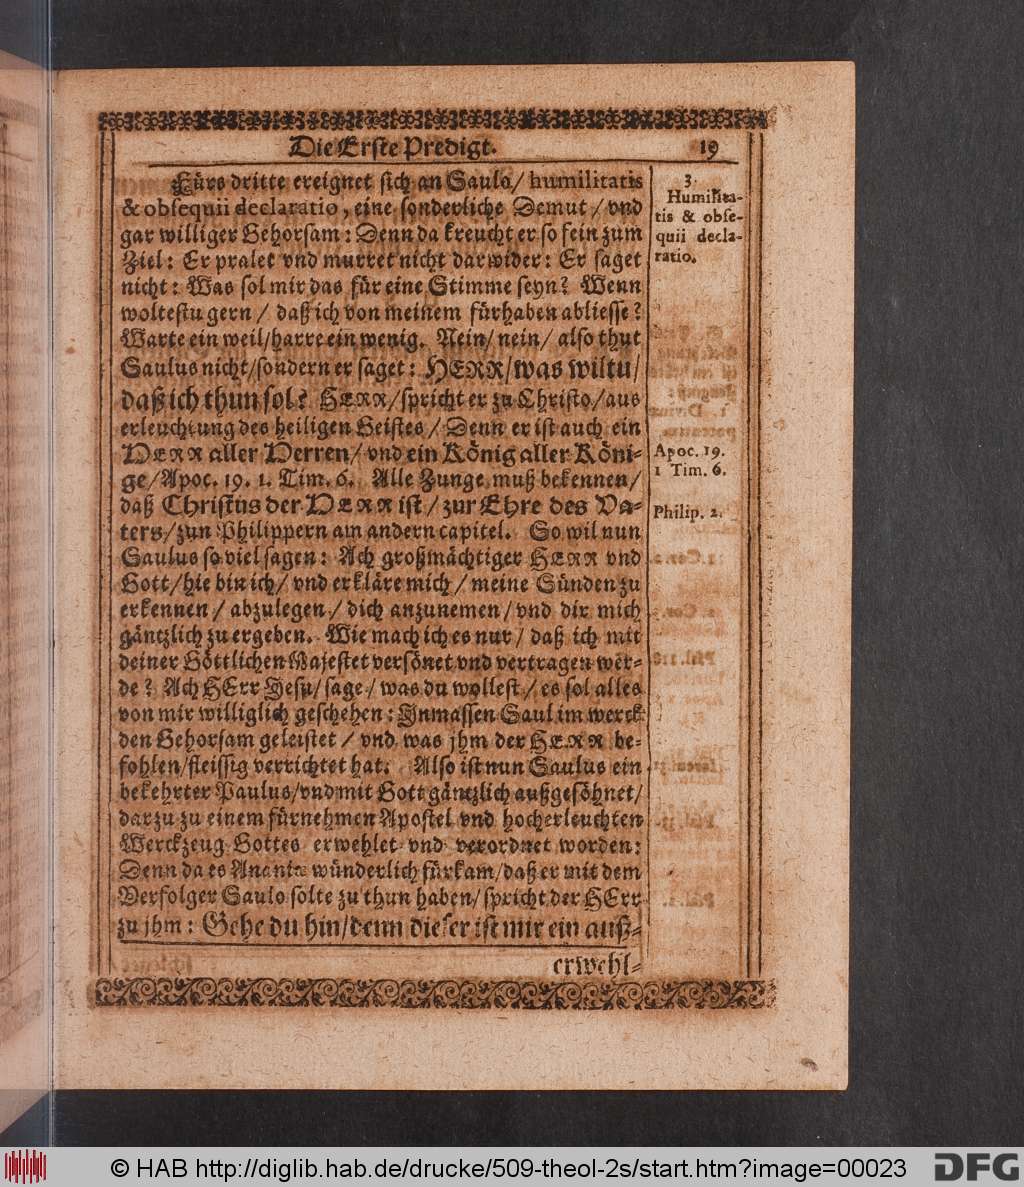 Die Erste Predigt. 19
Fürs dritte ereignet sich an Saulo/ humilitatis
& obsequii declaratio, eine sonderliche Demut/ vnd
gar williger Gehorsam: Denn da kreucht er so fein zum
Ziel: Er pralet vnd murret nicht darwider: Er saget
nicht: Was sol mir das für eine Stimme seyn? Wenn
woltestu gern/ daß ich von meinem fürhaben abliesse?
Warte ein weil/ harre ein wenig. Nein/ nein/ also thut
Saulus nicht/ sondern er saget: HERR/ was wiltu/
daß ich thun sol? HERR/ spricht er zu Christo/ aus
erleuchtung des heiligen Geistes/ Denn er ist auch ein
HERR aller Herren/ vnd ein König aller Köni-
ge/ Apoc. 19. 1. Tim. 6. Alle Zunge muß bekennen/
daß Christus der HERR ist/ zur Ehre des Va-
ters/ zun Philippern am andern capitel. So wil nun
Saulus so viel sagen: Ach großmächtiger HERR vnd
Gott/ hie bin ich/ vnd erkläre mich/ meine Sünden zu
erkennen/ abzulegen/ dich anzunemen/ vnd dir mich
gäntzlich zu ergeben. Wie mach ich es nur/ daß ich mit
deiner Göttlichen Majestet versönet vnd vertragen wer-
de? Ach HErr Jesu/ sage/ was du wollest/ es sol alles
von mir williglich geschehen: Inmassen Saul im werck
den Gehorsam geleistet/ vnd was jhm der HERR be-
fohlen/ fleissig verrichtet hat. Also ist nun Saulus ein
bekehrter Paulus/ vnd mit Gott gäntzlich außgesöhnet/
darzu zu einem fürnehmen Apostel vnd hocherleuchten
Werckzeug Gottes erwehlet vnd verordnet worden:
Denn da es Anania wünderlich fürkam/ daß er mit dem
Verfolger Saulo solte zu thun haben/ spricht der HErr
zu jhm: Gehe du hin/ denn dieser ist mir ein auß-
erwehl-
3.
Humilita-
tis & obse-
quii decla-
ratio.
Apoc. 19.
1 Tim. 6.
Philip. 2.
© HAB http://diglib.hab.de/drucke/509-theol-2s/start.htm?image=00023
DFG